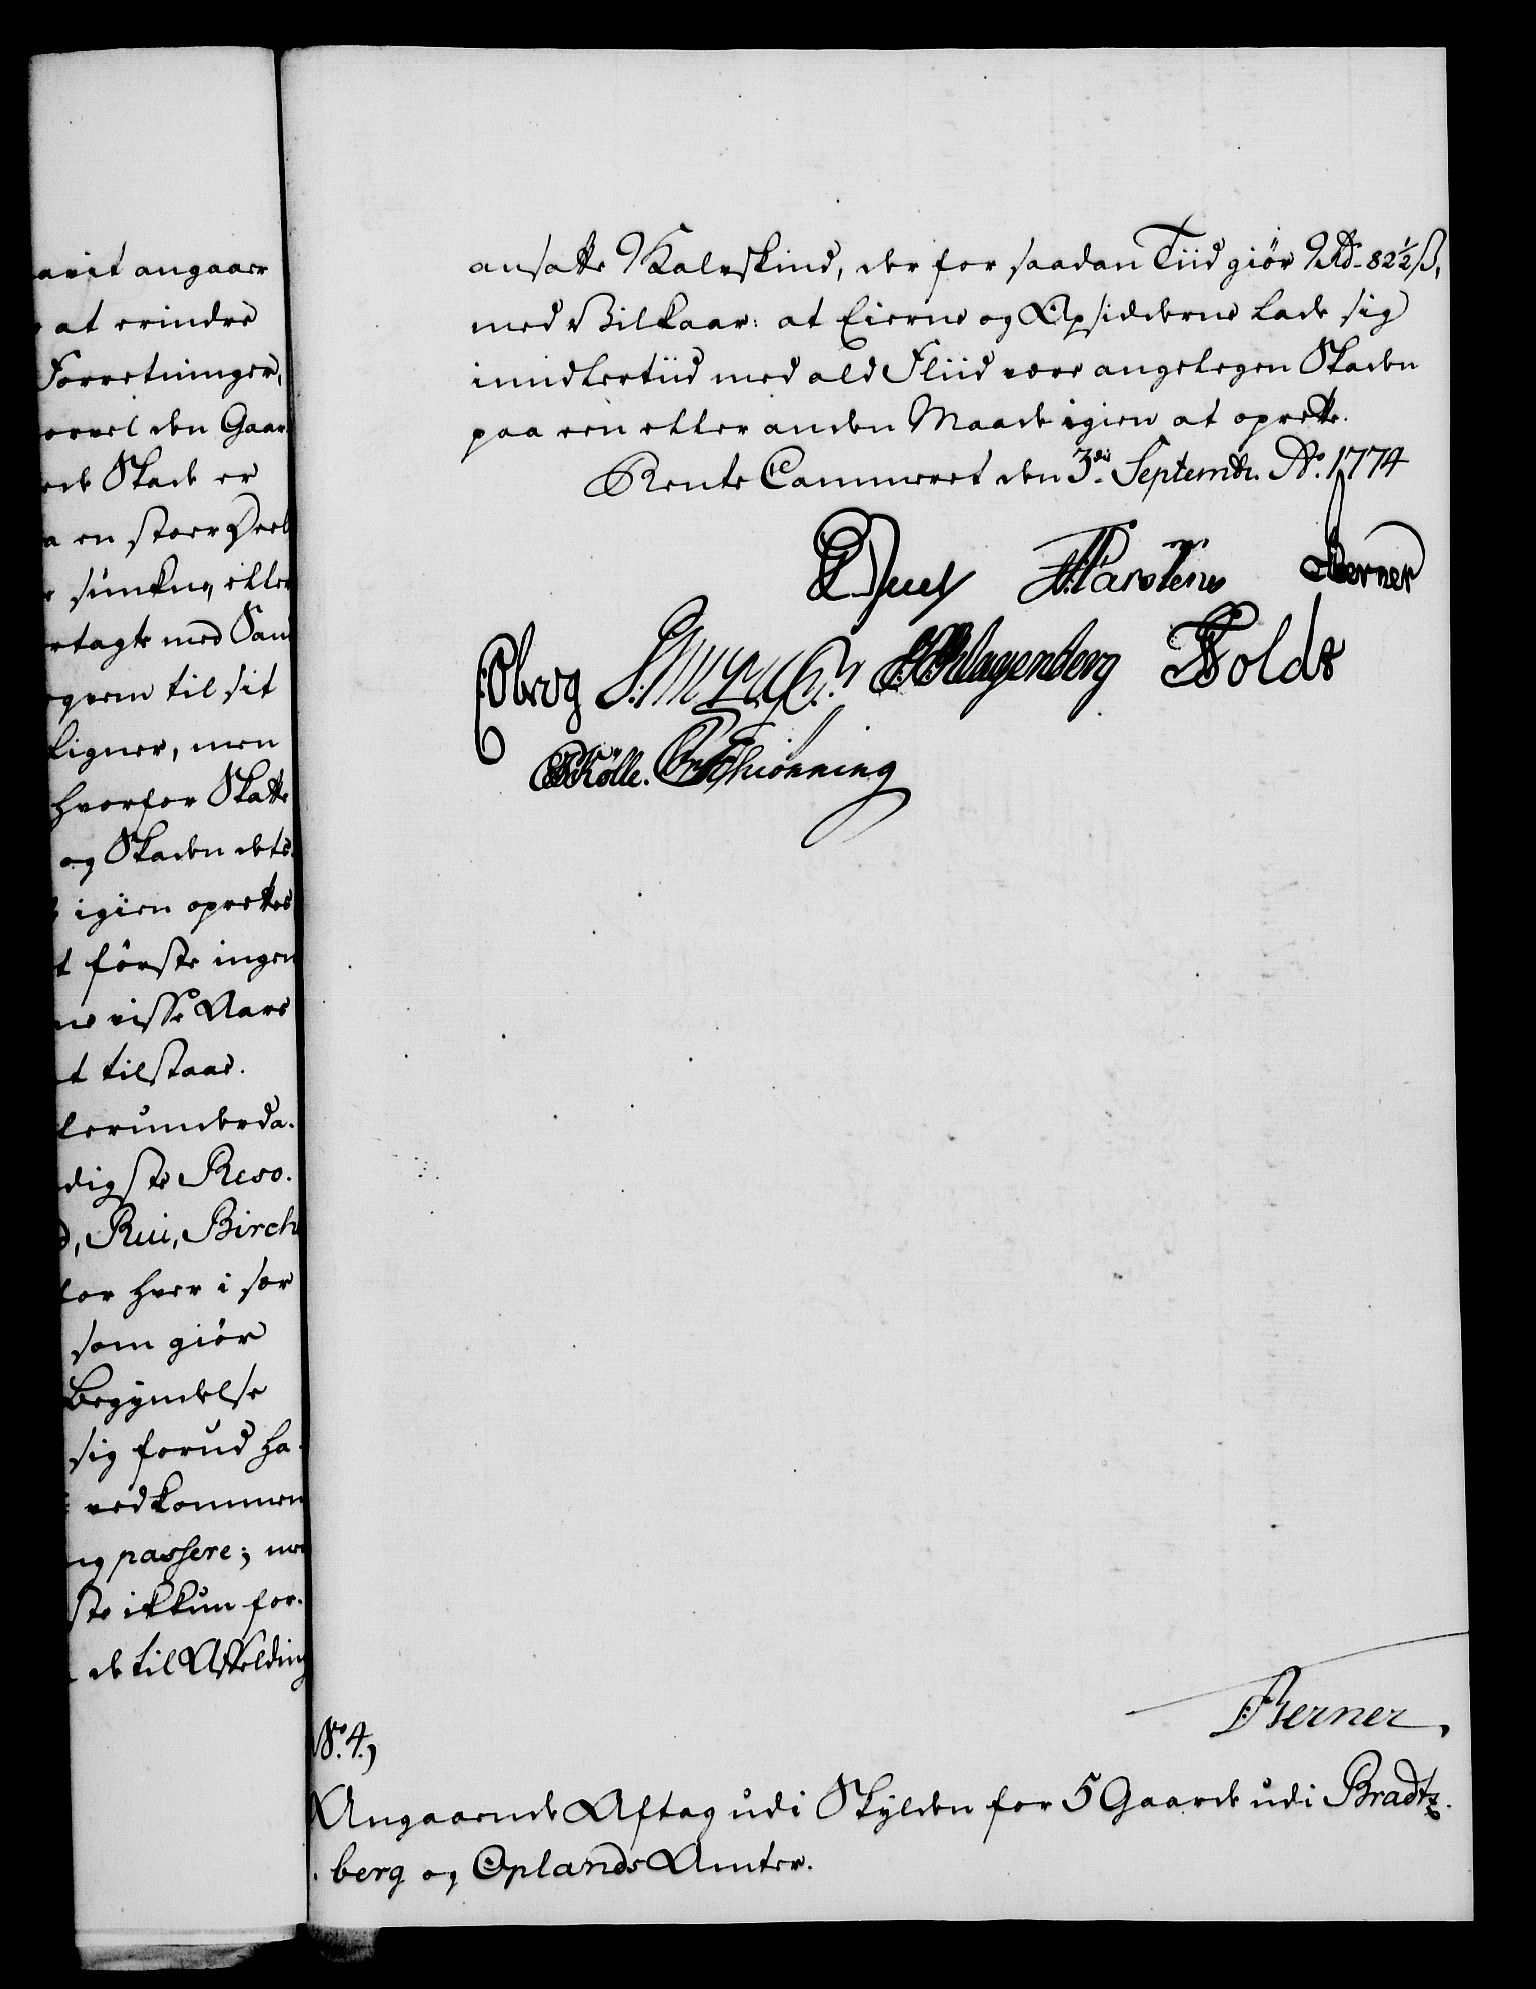 avit angaaer
at erindre
Forretninger,
orvel den Gaar
ede Skade er
a en stoer Deel
siunkne, eller
rtagte med San
ogerne til sit
ligner, men
hvorfor Skatte
og Skaden dets
igien oprettes
t første ingen
ne visse Aars
t tilstaae.
lerunderda-
digste Reso-
d, Rui, Birch
for hver i sær
som giør
Begyndelse
sig forud ha-
vedkommen
ng passere; men
ste ikkun for-
de til Affelding
ansatte Kalvskind, der for saadan Tiid giør Rd. 82½ ß,
med Vilkaar: at Eierne og Opsidderne lade sig
imidlertiid med ald Fliid være angelegen Skaden
paa een eller anden Maade igien at oprette.
Rente Cammeret den 3die Septembr. Ao. 1774
Juel Carstens Berner
Obrog Schlagenberg Holdt
Kølle. Schiönning
Berner,
No. 4,
Angaaende Aftag udi Skylden for 5 Gaarde udi Bradtz-
berg og Oplands Amter.